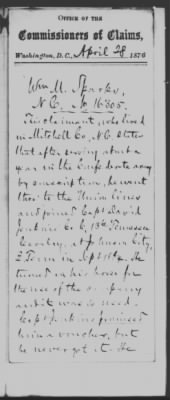 OFFICE OF THE
Commissioners of Claims,
Washington, D.C., April 28, 1876
Wm M. Sparks,
N.C. No 16805.
The claimant, who lived
in Mitchell Co, N.C. states
that after serving about a
year in the Confederate army
by conscription, he went
thro' to the Union lines
and joined Capt David
Jenkins Co C, 13th Tennessee
Cavalry, at Johnson City,
E. Tenn in Sept 1864. He
turned in his horse for
the use of the company
and it was so used.
Capt Jenkins promised
him a voucher, but
he never got it. He